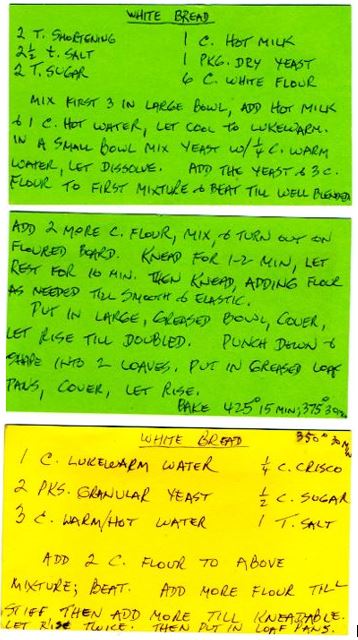 WHITE BREAD
2 T. SHORTENING 1 C. HOT MILK
2½ t. SALT 1 PKG. DRY YEAST
2 T. SUGAR 6 C. WHITE FLOUR
MIX FIRST 3 IN LARGE BOWL, ADD HOT MILK
& 1 C. HOT WATER, LET COOL TO LUKEWARM.
IN A SMALL BOWL MIX YEAST W/¼ C. WARM
WATER, LET DISSOLVE. ADD THE YEAST & 3 C.
FLOUR TO FIRST MIXTURE & BEAT TILL WELL BLENDED
ADD 2 MORE C. FLOUR, MIX, & TURN OUT ON
FLOURED BOARD. KNEAD FOR 1-2 MIN, LET
REST FOR 10 MIN. THEN KNEAD, ADDING FLOUR
AS NEEDED TILL SMOOTH & ELASTIC.
PUT IN LARGE, GREASED BOWL, COVER,
LET RISE TILL DOUBLED. PUNCH DOWN &
SHAPE INTO 2 LOAVES. PUT IN GREASED LOAF
PANS, COVER, LET RISE.
BAKE 425° 15 MIN; 375° 30 MIN
WHITE BREAD 350° 30 MIN
1 C. LUKEWARM WATER ¼ C. CRISCO
2 PKS. GRANULAR YEAST ½ C. SUGAR
3 C. WARM/HOT WATER 1 T. SALT
ADD 2 C. FLOUR TO ABOVE
MIXTURE; BEAT. ADD MORE FLOUR TILL
STIFF THEN ADD MORE TILL KNEADABLE.
LET RISE TWICE. THEN PUT IN LOAF PANS.